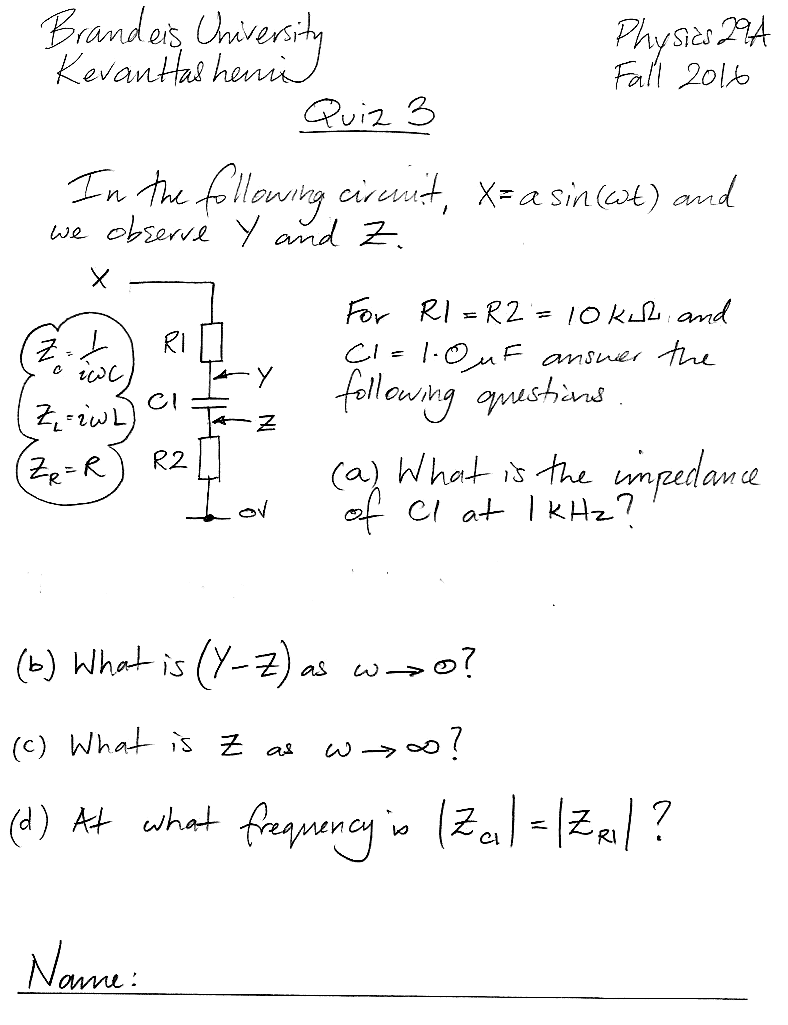 Brandeis University
Kevan Hashemi
Physics 29A
Fall 2016
Quiz 3
In the following circuit, X = a sin(ωt) and
we observe Y and Z.
X
R1
Y
C1
Z
R2
0V
Z_C = 1/iωC
Z_L = iωL
Z_R = R
For R1 = R2 = 10 kΩ and
C1 = 1.0 μF answer the
following questions.
(a) What is the impedance
of C1 at 1 kHz?
(b) What is (Y-Z) as ω → 0?
(c) What is Z as ω → ∞?
(d) At what frequency is |Z_C1| = |Z_R1| ?
Name: